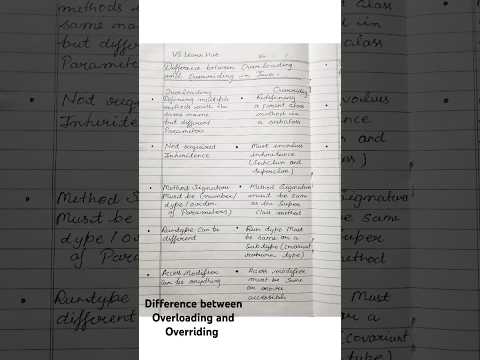 VS Learn Hub
Difference between Overloading
and Overriding in Java.
Overloading Overriding
Defining multiple Redefining
methods with the a parent class
same name method in
but different a subclass
Parameters
Not required Must involves
Inheritence inheritance
(Subclass and
superclass)
Method Signature Method Signature
Must be (number/ must be same
type/order as the Super
of Parameters) Class method
Runtype Can be Run type Must
different be same or a
Subtype (covariant
type)
Access Modifier Access modifier
can be anything must be same
or more
accessible
methods
same man
but differen
Parameters
Not requi
Inherite
Method Sig
Must be
type/o
of Param
Runtype
different
class
in
class
involves
and
)
Signature
same
Super
method
Must
or a
covariant
type)
Difference between
Overloading and
Overriding